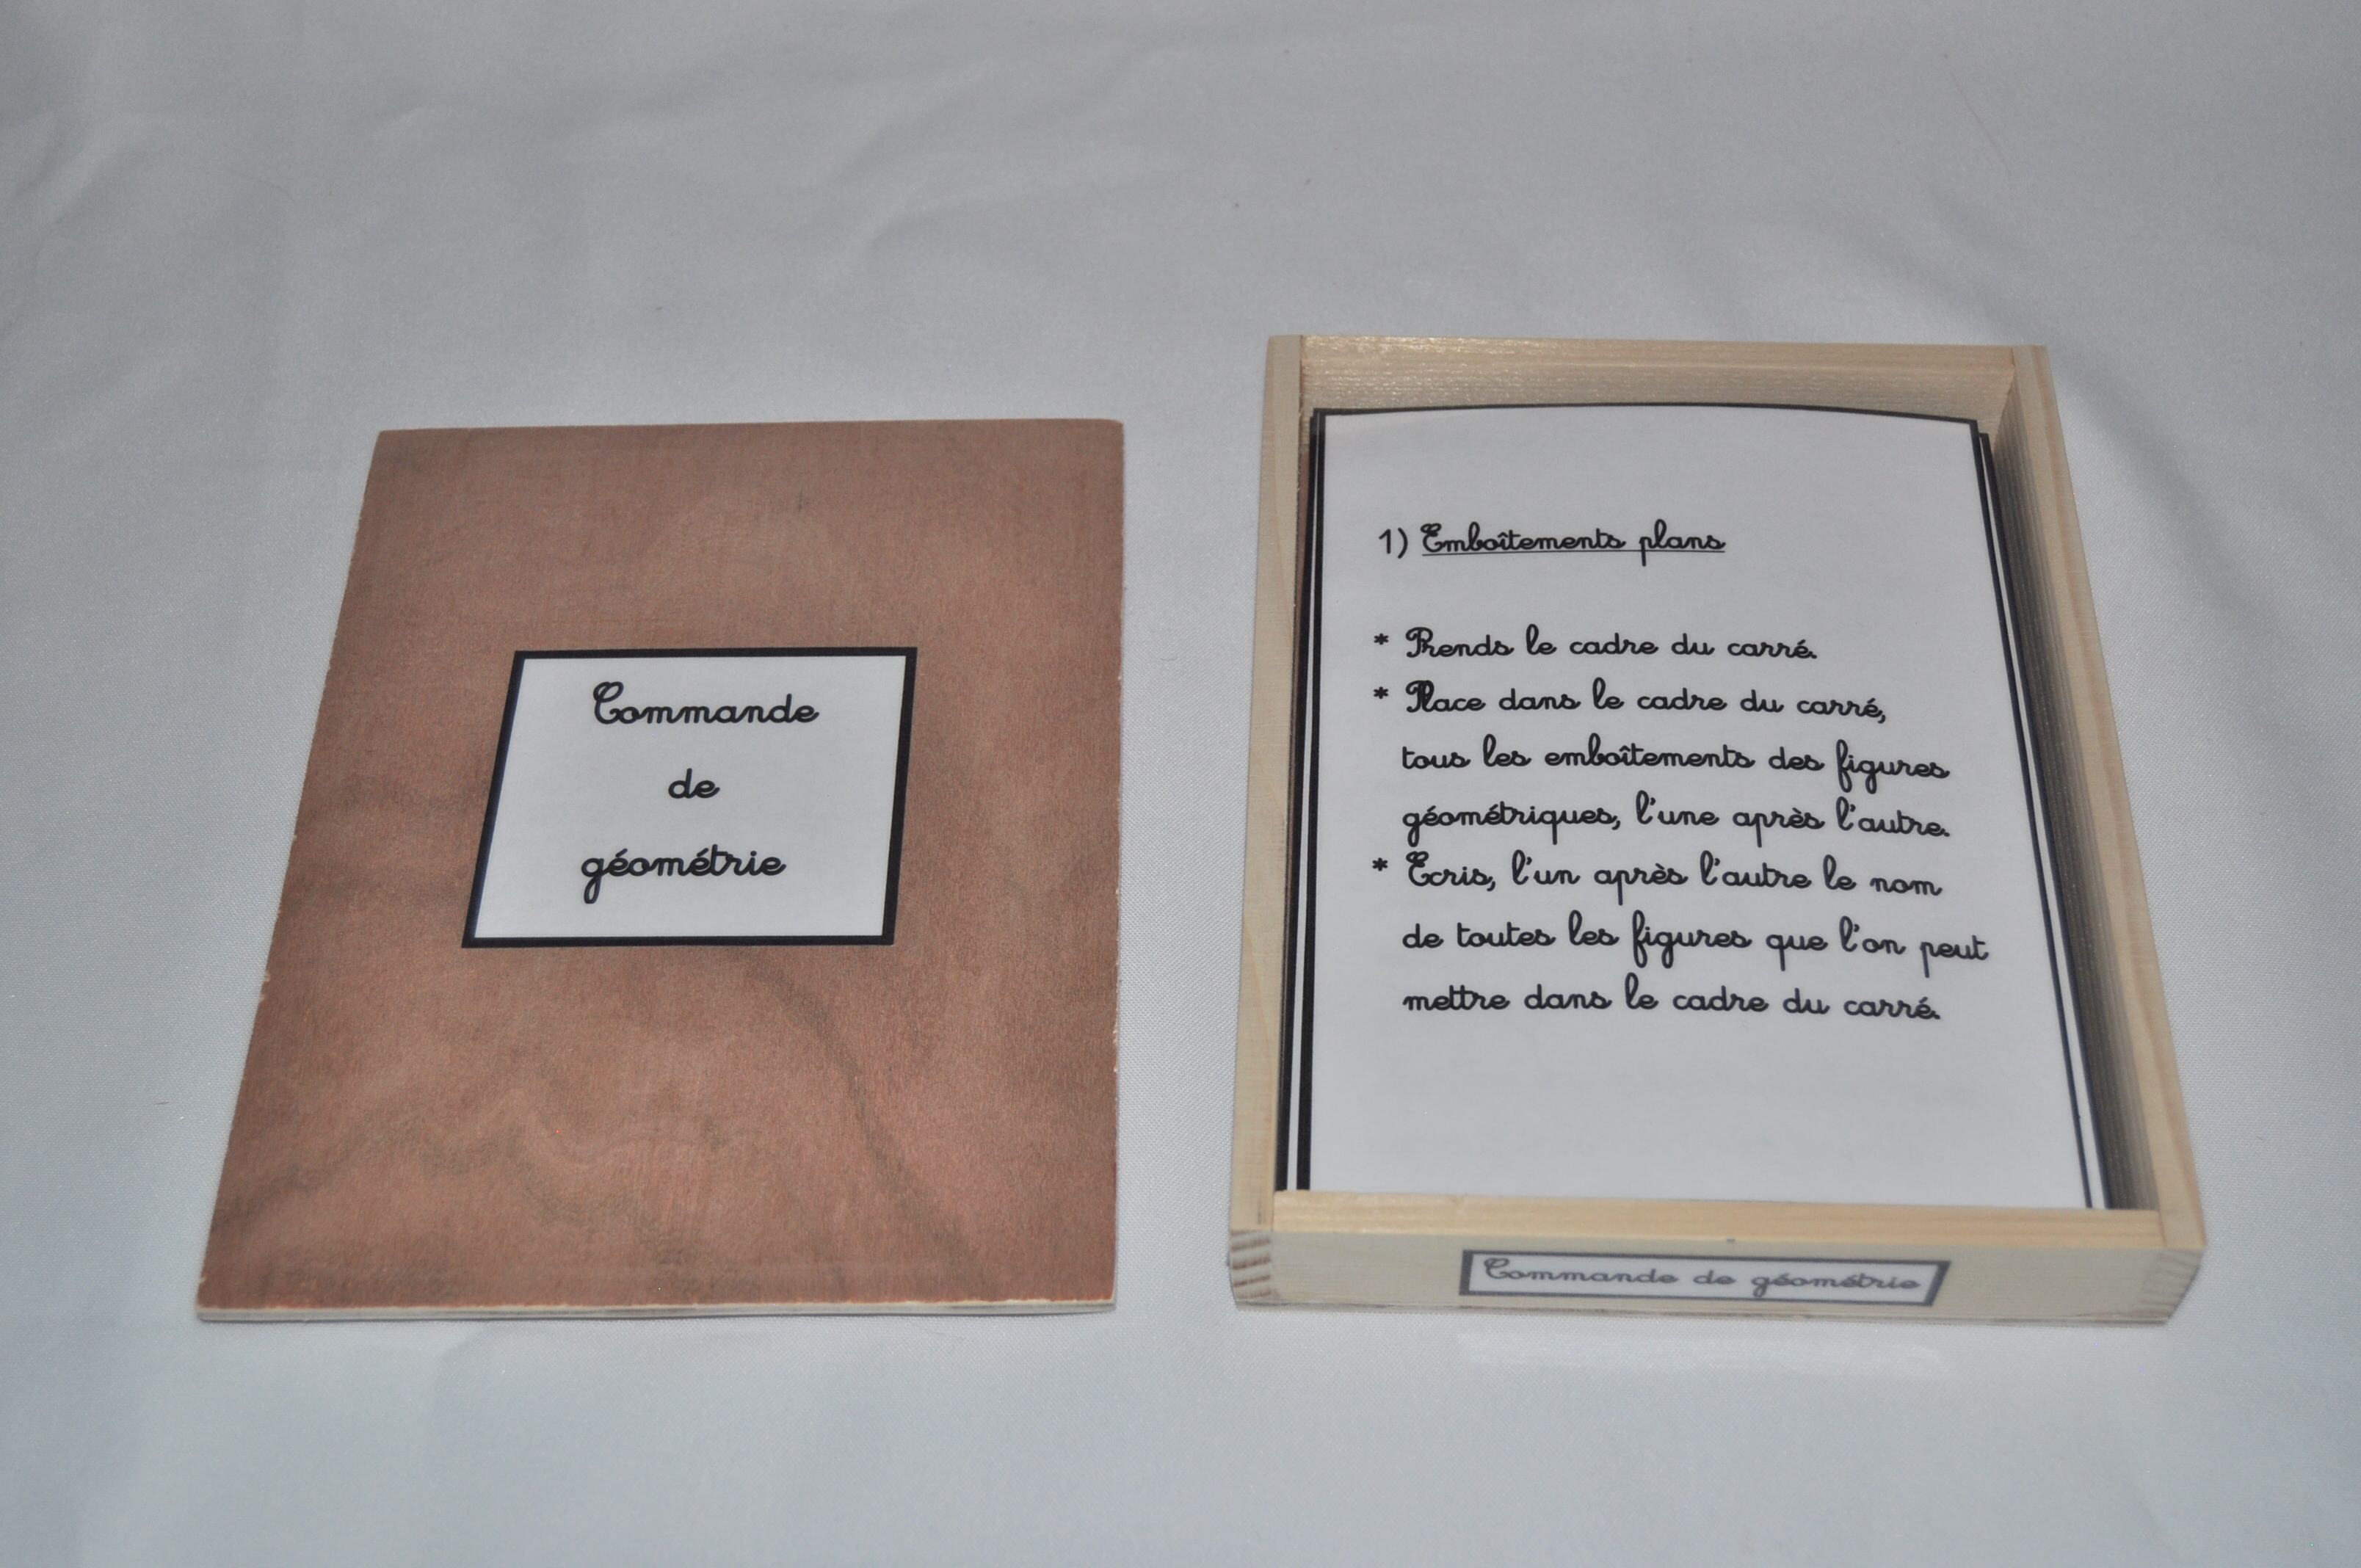 Commande
de
géométrie
1) Emboîtements plans
* Prends le cadre du carré.
* Place dans le cadre du carré,
tous les emboîtements des figures
géométriques, l'une après l'autre.
* Ecris, l'un après l'autre le nom
de toutes les figures que l'on peut
mettre dans le cadre du carré.
Commande de géométrie